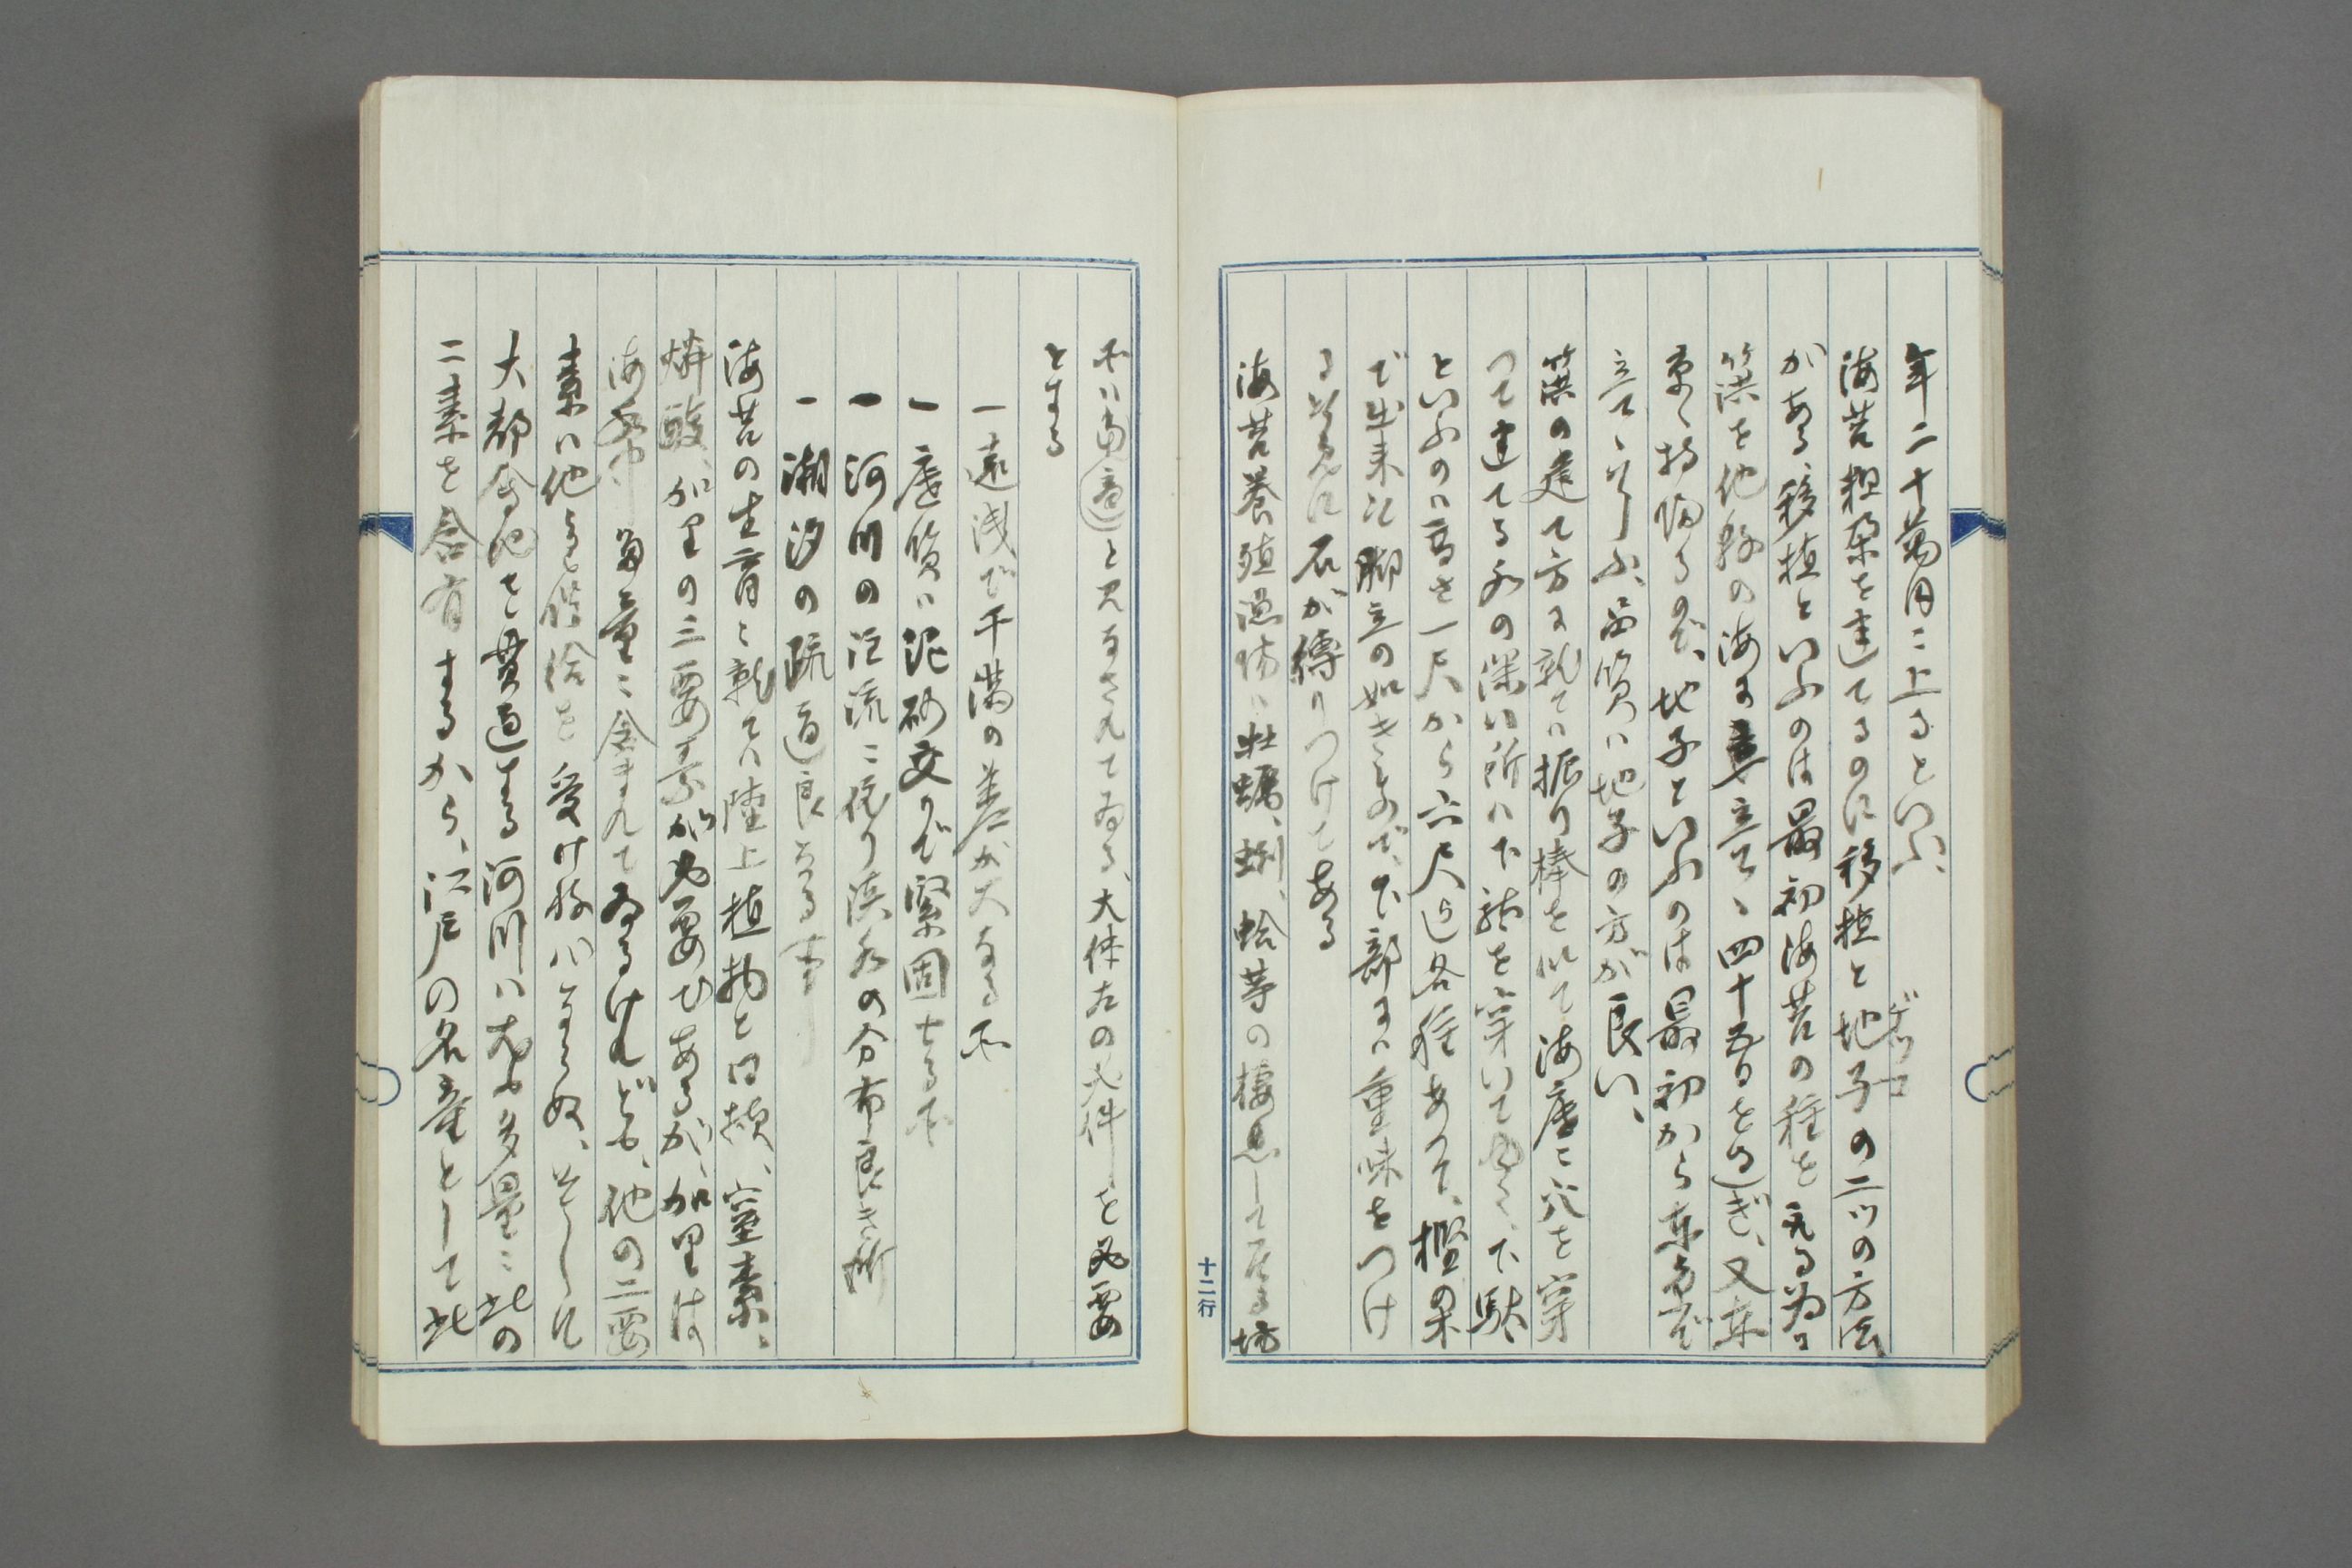 年二十萬円ニ上るといふ、
海苔粗朶を建てるのに移植と地子の二ツの方法
ヂッコ
がある移植といふのは最初海苔の種を取る為ニ
篊を他縣の海に立て、四十五日を過ぎ、又東
京へ持帰るのだ、地子といふのは最初から東京で
立て、行ふ、品質は地子の方が良い、
篊の建て方に就ては振り棒を以て海底ニ穴を穿
つて建てる水の深い所ハ下駄を穿いて働く、下駄
といふのハ高さ一尺から六尺迄各種あつて、樫の木
で出来た脚立の如きもので、下部には重味をつけ
る為めに石が縛りつけてある
海苔養殖場ハ牡蠣、蜊、蛤等の棲息して居る場
所ハ適当と見なされてゐる、大体左の条件を必要
とする
一遠浅で干満の差が大なる所
一底質ハ泥砂交りで緊固なる所
一河川の注流ニ依り淡水の分布良き所
一潮汐の疏通良好なる事
海苔の生育ニ就てハ陸上植物と同様、窒素、
燐酸、加里の三要素が必要であるが、加里は
海水中ニ多量ニ含まれてゐるけれども、他の二要
素ハ他より供給を受け杯ハならぬ、そして
大都會地を貫通する河川ハ尤も多量ニ此の
二素を含有するから、江戸の名産として此
十二行